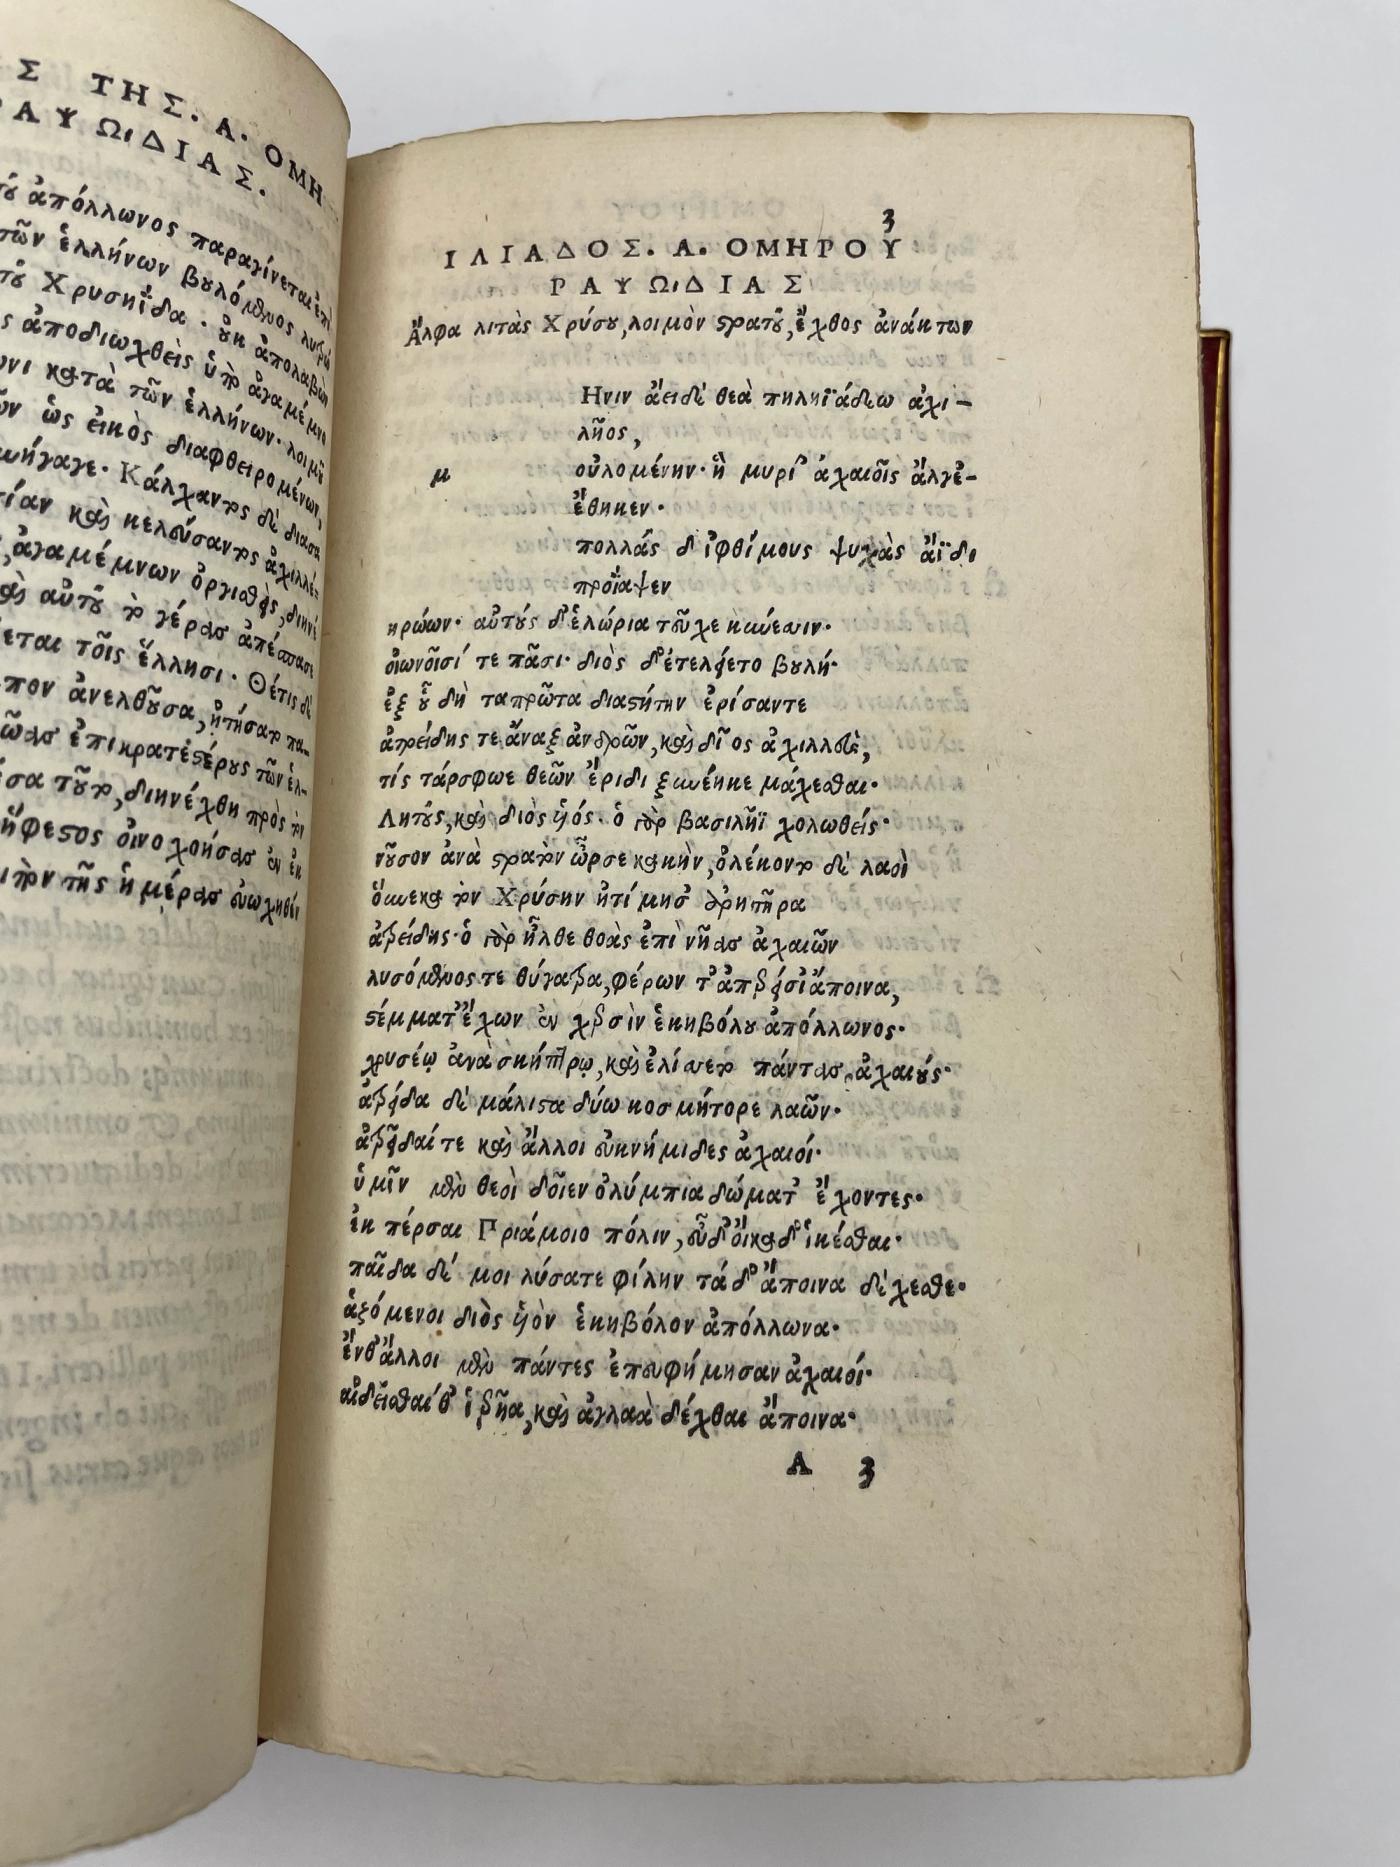 Σ ΤΗΣ. Α. ΟΜΗ
ΡΑΨΩΙΔΙΑΣ.
ἀπόλλωνος παραγίνεται ἐπὶ
τῶν ἑλλήνων βουλόμενος
τοῦ Χρυσηΐδα. οὐκ ἀπολαβὼν
ς ἀποδιωχθεὶς ὑπὸ ἀγαμέμνο
κατὰ τῶν ἑλλήνων. λοιμοῦ
ὡς εἰκὸς διαφθειρομένων,
Κάλχαντος δὲ διασα
καὶ κελεύσαντος ἀχιλλέ-
ἀγαμέμνων ὀργισθεὶς, διηνέ
καὶ αὐτοῦ τὸ γέρας ἀπέσπασε
εται τοῖς ἕλλησι. Θέτις δὲ
πον ἀνελθοῦσα, ᾐτήσατο πα-
ῶας ἐπικρατεστέρους τῶν ἑλ-
σα τοῦτο, διηνέχθη πρὸς τὸν
ἥφεστος οἰνοχοήσας ἐν
τὸν τῆς ἡμέρας εὐωχηθεί
3
ΙΛΙΑΔΟΣ. Α. ΟΜΗΡΟΥ
ΡΑΨΩΙΔΙΑΣ
Ἄλφα λιτὰς Χρύσου, λοιμὸν στρατοῦ, ἔχθος ἀνάκτων
Ηνιν ἄειδε θεὰ πηληϊάδεω ἀχι-
λῆος,
μ οὐλομένην. ἣ μυρί' ἀχαιοῖς ἄλγε'-
ἔθηκεν.
πολλάς δ' ἰφθίμους ψυχὰς ἄϊδι
προΐαψεν
ηρώων. αὐτούς δ' ἑλώρια τεῦχε κύνεσσιν.
οἰωνοῖσί τε πᾶσι. διὸς δ' ἐτελείετο βουλή.
ἐξ οὗ δὴ ταπρῶτα διαστήτην ἐρίσαντε
ἀτρείδης τε ἄναξ ἀνδρῶν, καὶ δῖος ἀχιλλεὺς,
τίς τάρσφωε θεῶν ἔριδι ξυνέηκε μάχεσθαι.
Λητοῦς, καὶ διὸς ὑιός. ὁ γὰρ βασιλῆϊ χολωθείς.
νοῦσον ἀνὰ στρατὸν ὦρσε κακὴν, ὀλέκοντο δὲ λαοὶ
οὕνεκα τὸν Χρύσην ἠτίμησ' ἀρητῆρα
ἀτρείδης. ὁ γὰρ ἦλθε θοὰς ἐπὶ νῆας ἀχαιῶν
λυσόμενος τε θύγατρα, φέρων τ' ἀπερείσι' ἄποινα,
στέμματ' ἔχων ἐν χερσὶν ἑκηβόλου ἀπόλλωνος.
χρυσέῳ ἀνὰ σκήπτρῳ, καὶ ἐλίσσετο πάντας ἀχαιούς.
ἀτρείδα δὲ μάλιστα δύω κοσμήτορε λαῶν.
ἀτρεῖδαί τε καὶ ἄλλοι εὐκνήμιδες ἀχαιοί.
ὑμῖν μὲν θεοὶ δοῖεν ὀλύμπια δώματ' ἔχοντες.
ἐκ πέρσαι Πριάμοιο πόλιν, εὖ δ' οἴκαδ' ἱκέσθαι.
παῖδα δέ μοι λύσατε φίλην τά δ' ἄποινα δέχεσθε.
ἁζόμενοι διὸς ὑιὸν ἑκηβόλον ἀπόλλωνα.
ἔνθ' ἄλλοι μὲν πάντες ἐπευφήμησαν ἀχαιοί.
αἰδεῖσθαί θ' ἱερῆα, καὶ ἀγλαὰ δέχθαι ἄποινα.
A 3